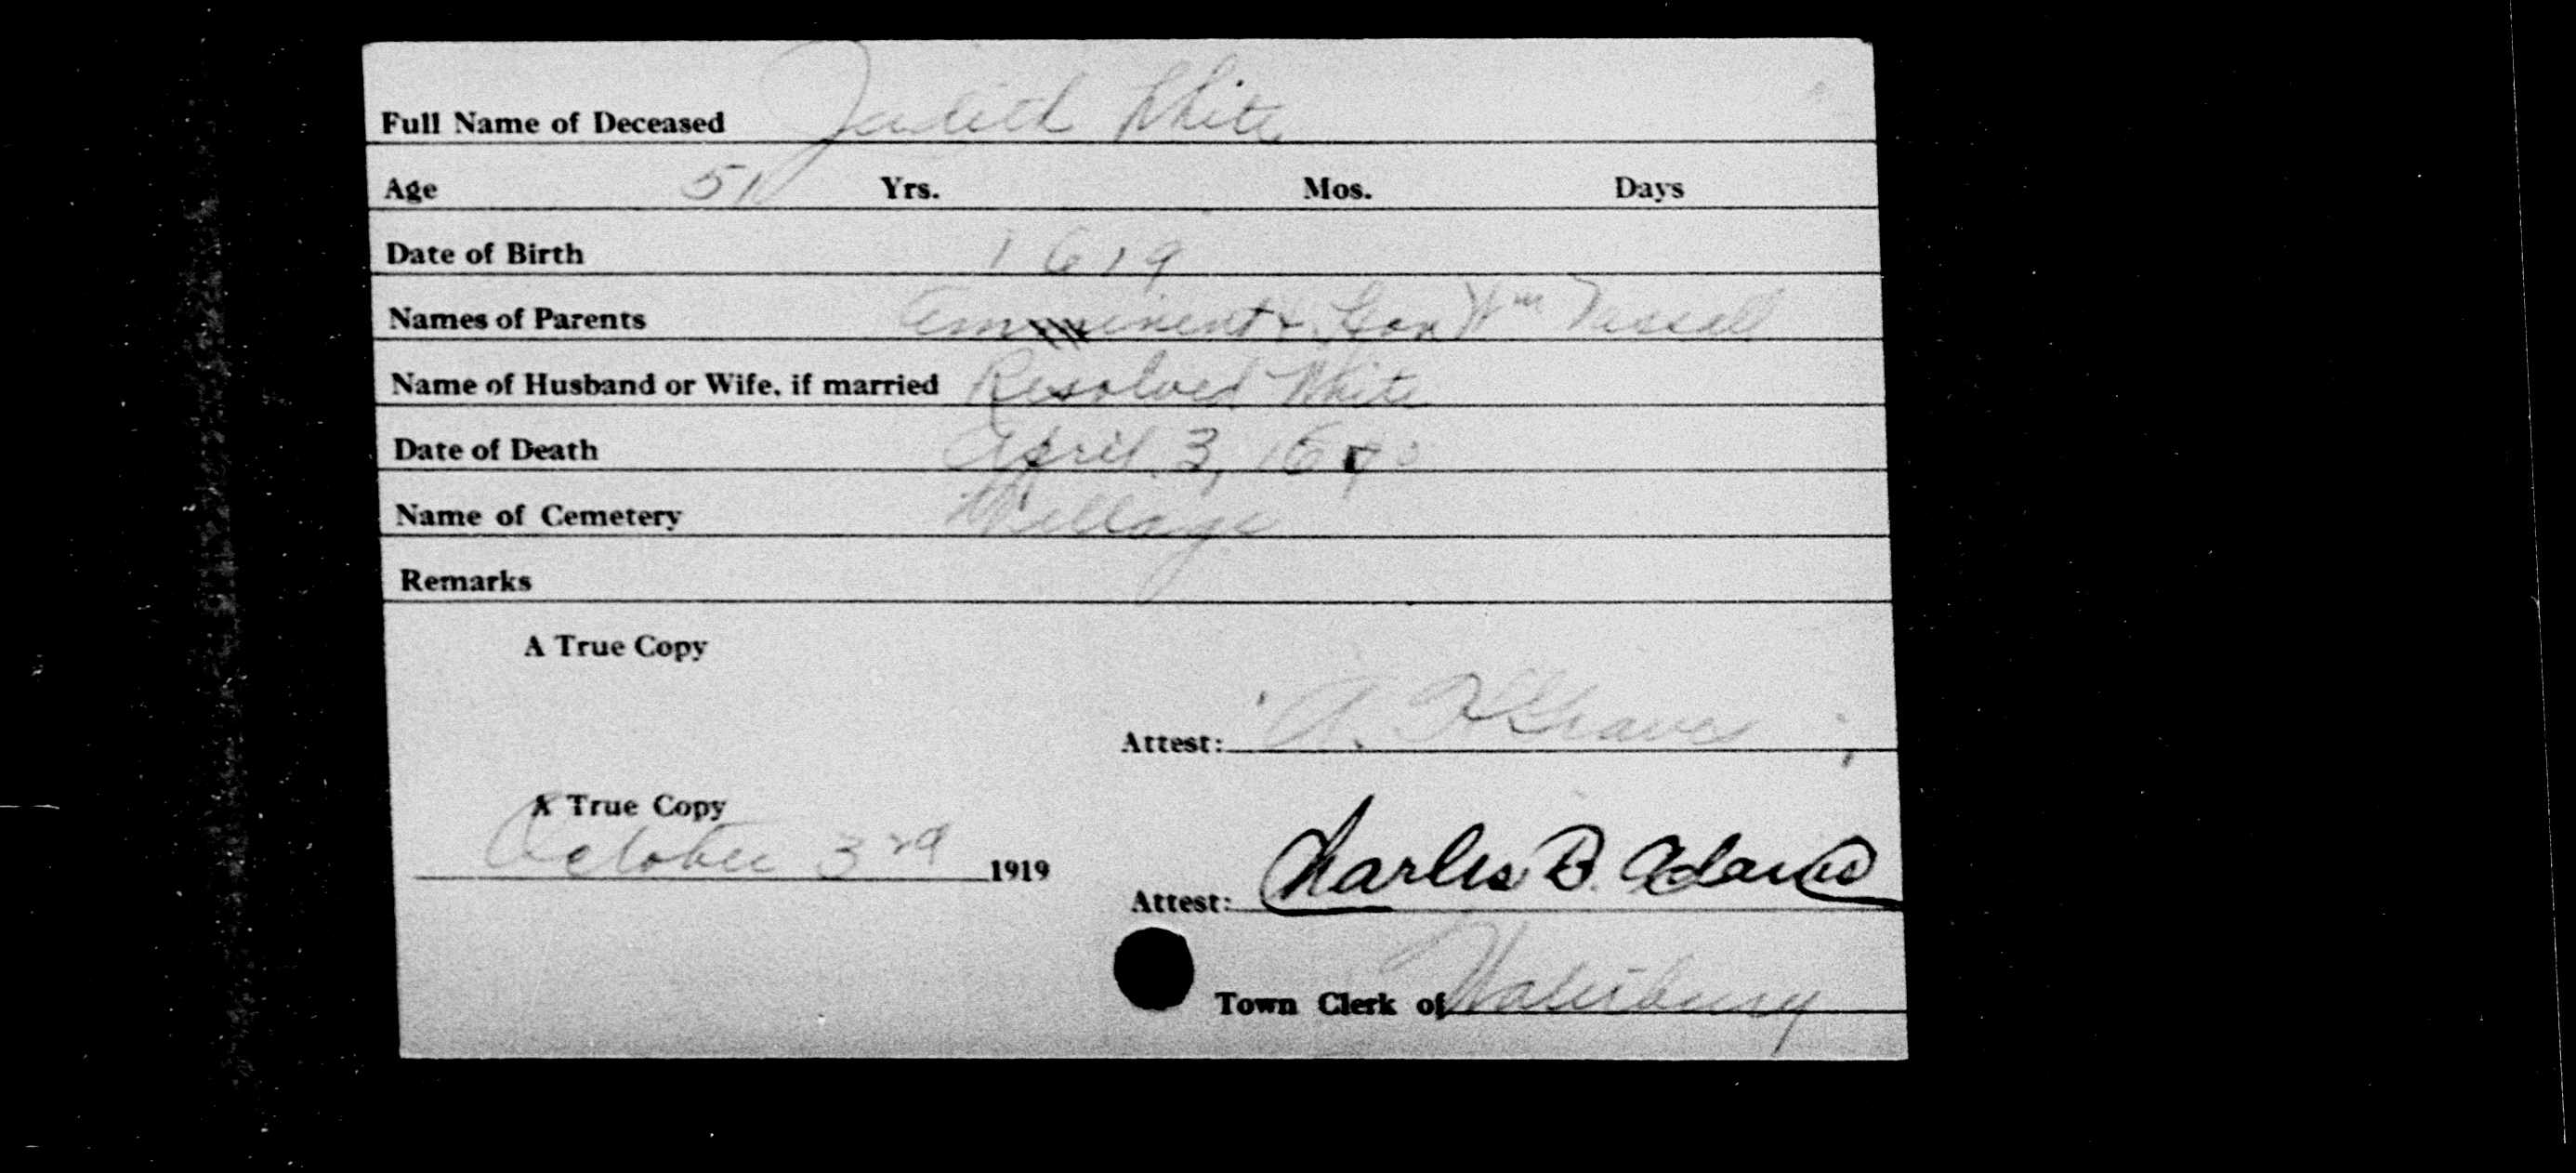 Full Name of Deceased Judith White
Age 51 Yrs. Mos. Days
Date of Birth 1619
Names of Parents Eminent & Hon Wm Vassall
Name of Husband or Wife, if married Resolved White
Date of Death April 3, 1670
Name of Cemetery Village
Remarks
A True Copy
Attest: A. Graves
A True Copy
October 3rd 1919
Attest: Charles B. Adams
Town Clerk of Waterbury